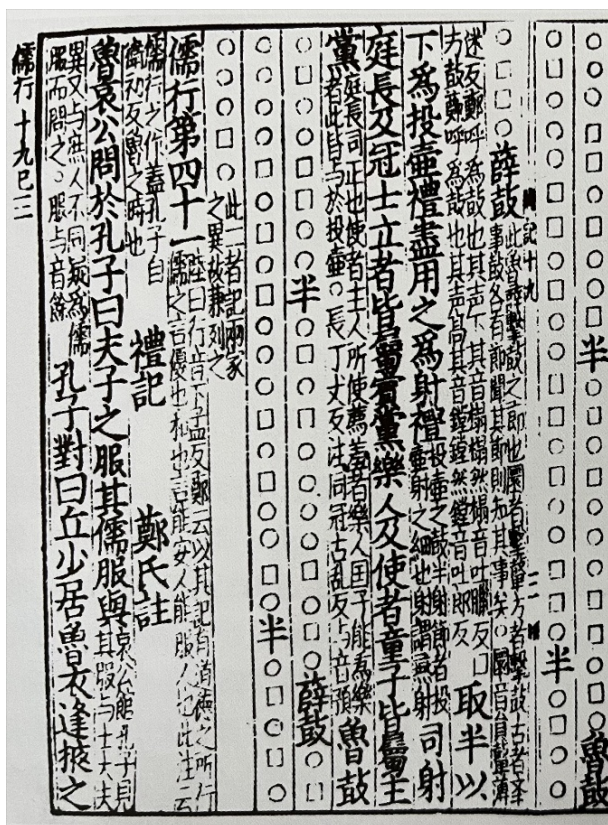 半 魯鼓
半
薛鼓
此魯薛擊鼓之節也圜者擊鼙方者擊鼓古者舉
事鼓各有節聞其節則知其事矣○圜音員鼙薄
記十九
迷反鄭呼爲鼓也其声下其音榻榻然榻音吐臘反□
方鼓鄭呼爲鼓也其声高其音鏜鏜然鏜音吐郎反
取半以
下爲投壺禮盡用之爲射禮
投壺之鼓半射節者投
壺射之細也射謂燕射
司射
庭長及冠士立者皆屬賓黨樂人及使者童子皆屬主
黨
庭長司正也使者主人所使薦羞者樂人国子能爲樂
者此皆与於投壺○長丁丈反注同冠古乱反与音預
魯鼓
半 薛鼓
半
此二者記兩家
之異故兼列之
儒行第四十一
陸曰行音下孟反鄭云以其記有道德之所行
儒之言優也和也言能安人能服人也此注云
儒行之作蓋孔子自
衛初反魯之時也
禮記 鄭氏註
魯哀公問於孔子曰夫子之服其儒服與
哀公館孔子見
其服与士大夫
異又与庶人不同疑爲儒
服而問之○服与音餘
孔子對曰丘少居魯衣逢掖之
儒行 十九 巳三